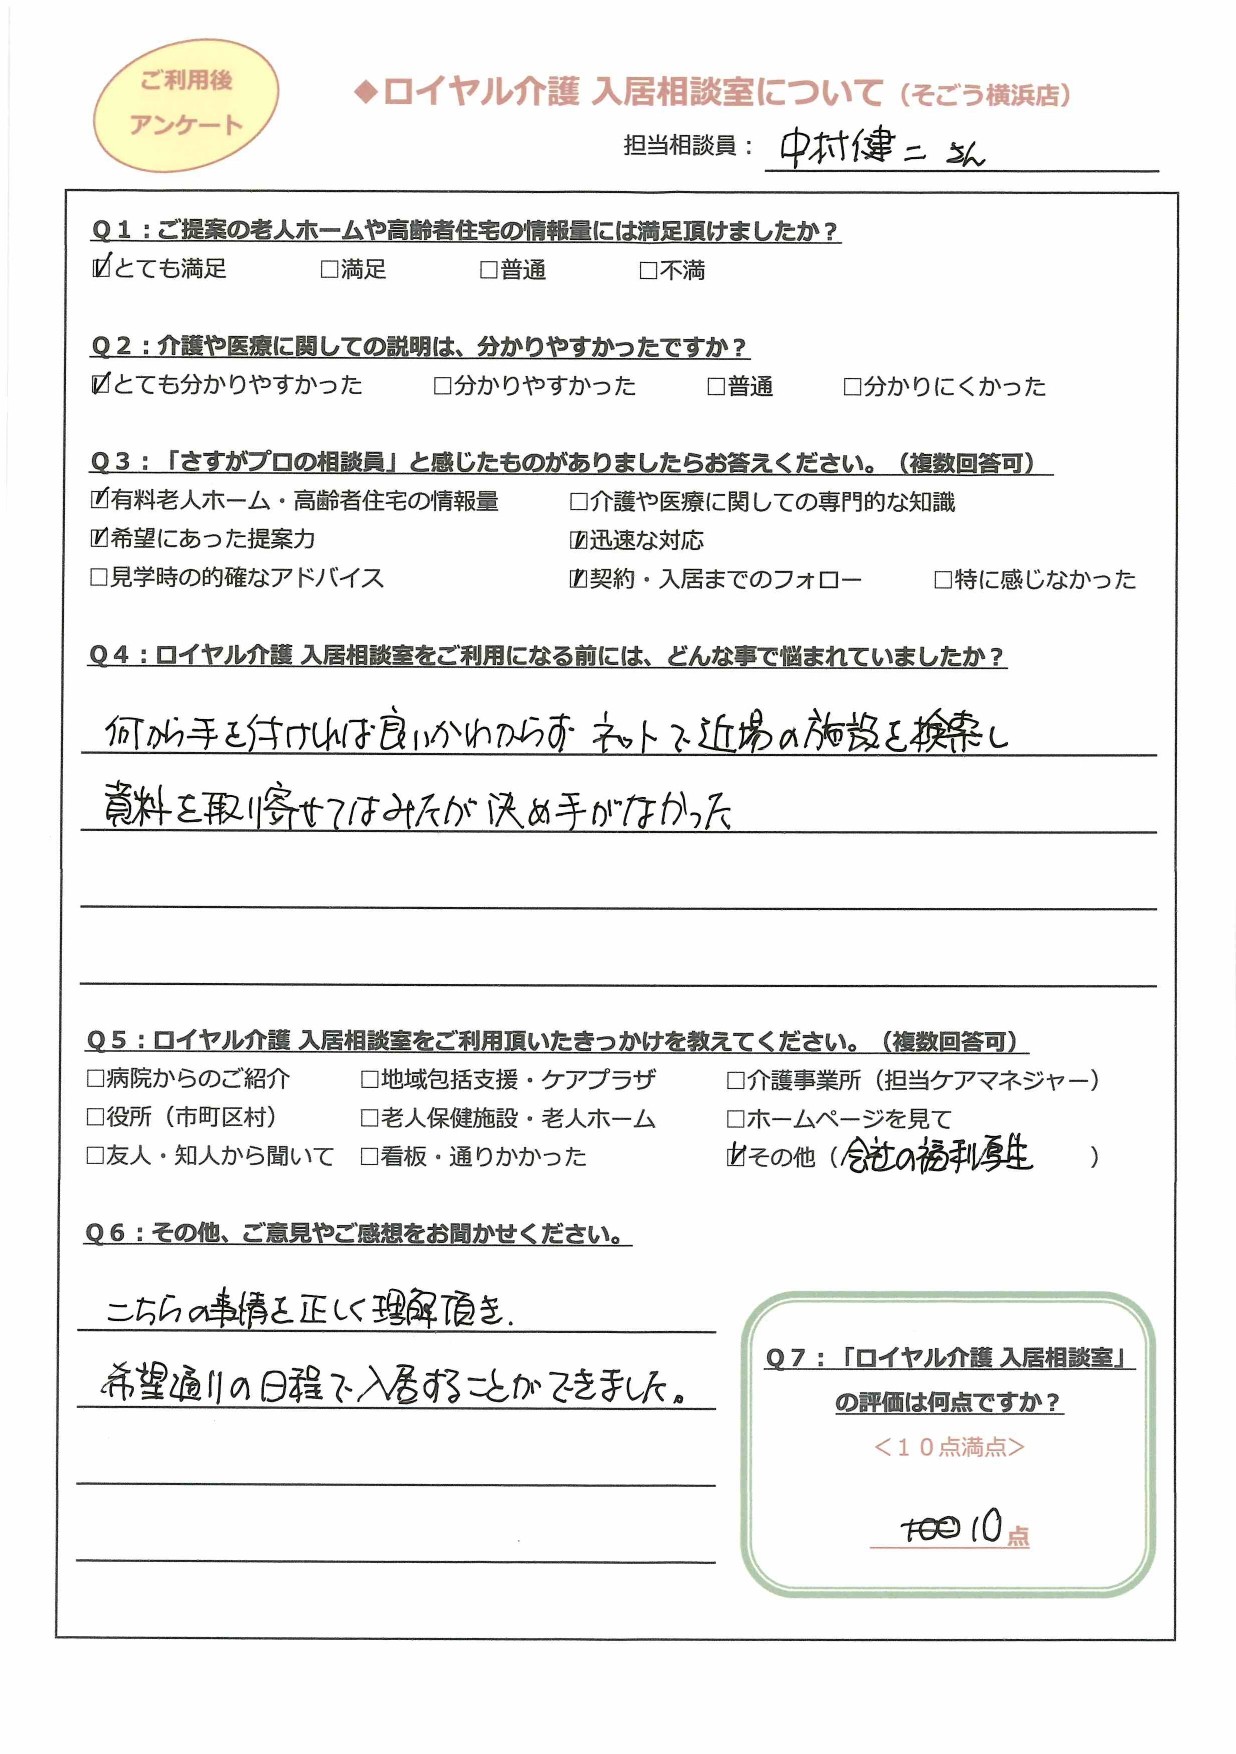 ご利用後
アンケート
◆ロイヤル介護 入居相談室について（そごう横浜店）
担当相談員： 中村健二 さん
Ｑ１：ご提案の老人ホームや高齢者住宅の情報量には満足頂けましたか？
☑とても満足 □満足 □普通 □不満
Ｑ２：介護や医療に関しての説明は、分かりやすかったですか？
☑とても分かりやすかった □分かりやすかった □普通 □分かりにくかった
Ｑ３：「さすがプロの相談員」と感じたものがありましたらお答えください。（複数回答可）
☑有料老人ホーム・高齢者住宅の情報量 □介護や医療に関しての専門的な知識
☑希望にあった提案力 ☑迅速な対応
□見学時の的確なアドバイス ☑契約・入居までのフォロー □特に感じなかった
Ｑ４：ロイヤル介護 入居相談室をご利用になる前には、どんな事で悩まれていましたか？
何から手を付ければ良いかわからず ネットで近場の施設を検索し
資料を取り寄せてはみたが 決め手がなかった
Ｑ５：ロイヤル介護 入居相談室をご利用頂いたきっかけを教えてください。（複数回答可）
□病院からのご紹介 □地域包括支援・ケアプラザ □介護事業所（担当ケアマネジャー）
□役所（市町区村） □老人保健施設・老人ホーム □ホームページを見て
□友人・知人から聞いて □看板・通りかかった ☑その他（会社の福利厚生 ）
Ｑ６：その他、ご意見やご感想をお聞かせください。
こちらの事情を正しく理解頂き.
希望通りの日程で入居することができました。
Ｑ７：「ロイヤル介護 入居相談室」
の評価は何点ですか？
＜１０点満点＞
100 10点